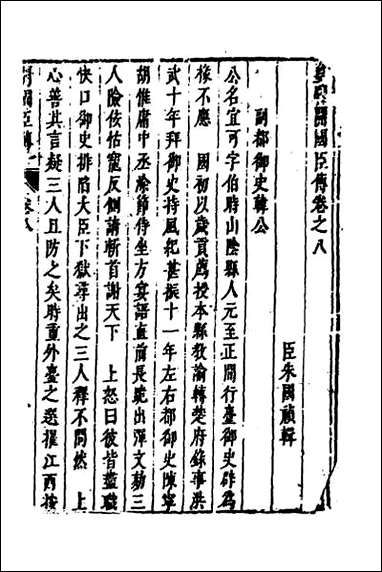 皇明開國臣傳卷之八
臣朱國禎輯
副都御史韓公
公名宜可字伯時山陰縣人元至正間行臺御史辟為
掾不應　國初以歲貢薦授本縣教諭轉楚府錄事洪
武十年拜御史持風紀甚振十一年左右都御史陳寧
胡惟庸中丞涂節侍坐方宴語直前長跪出彈文劾三
人險佞怙寵反側請斬首謝天下　上怒曰彼皆藎職
快口御史排陷大臣下獄尋出之三人釋不問然　上
心善其言疑三人且防之矣時重外臺之選擢江西按
開國臣傳
卷八